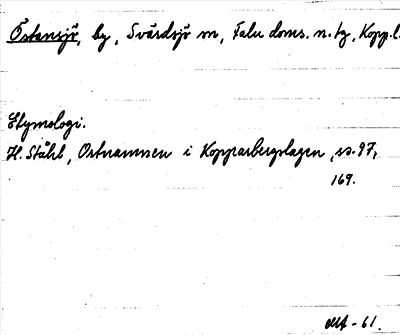 Östansjö, by, Svärdsjö sn, Falu doms. n. tg, Kopp. l.
Etymologi.
H. Ståhl, Ortnamnen i Kopparbergslagen, ss. 97,
169.
-61.